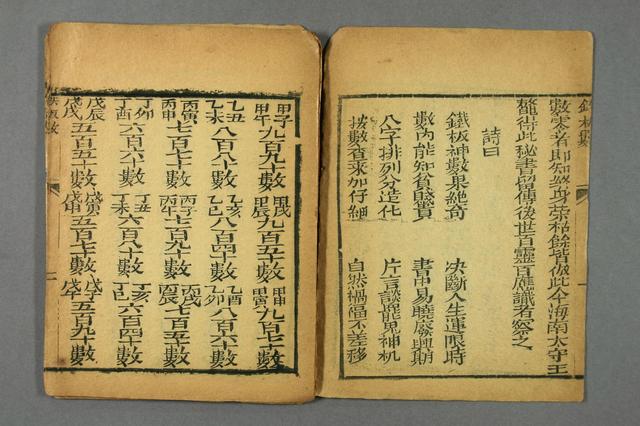 鐵板數
數零者即知終身榮枯餘皆倣此今海南太守王
鰲得此秘書留傳後世百靈百應識者察之
詩曰
鐵板神數果絕奇 決斷人生運限時
數內能知貧賤貴 書中易曉廢興期
八字排列分造化 片言談鬼神机
按數省來加仔細 自然禍福不差移
甲子甲午九百九十數 甲戌甲辰九百五十數 甲申甲寅九百七十數
乙丑乙未八百八十數 乙亥乙巳八百四十數 乙酉乙卯八百六十數
丙寅丙申七百七十數 丙子丙午七百九十數 丙戌丙辰七百五十數
丁卯丁酉六百六十數 丁丑丁未六百八十數 丁亥丁巳六百四十數
戊辰戊戌五百五十數 戊寅戊申五百七十數 戊子戊午五百九十數